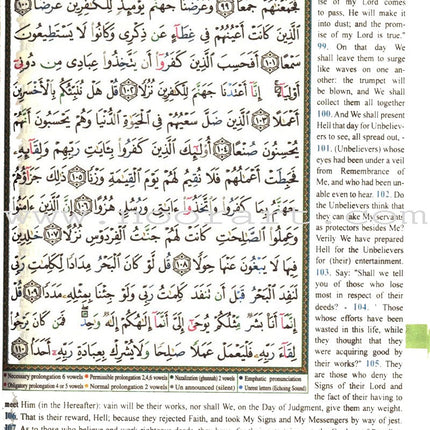 فجمعنهم جمعا ٩٩ وعرضنا جهنم يومئذ للكفرين عرضا ١٠٠
الذين كانت أعينهم فى غطاء عن ذكرى وكانوا لا يستطيعون
سمعا ١٠١ أفحسب الذين كفروا أن يتخذوا عبادى من دونى
أولياء إنا أعتدنا جهنم للكفرين نزلا ١٠٢ قل هل ننبئكم بالأخسرين
أعملا ١٠٣ الذين ضل سعيهم فى الحيوة الدنيا وهم يحسبون أنهم
يحسنون صنعا ١٠٤ أولئك الذين كفروا بئايت ربهم ولقائه
فحبطت أعملهم فلا نقيم لهم يوم القيمة وزنا ١٠٥ ذلك جزاؤهم
جهنم بما كفروا واتخذوا ءايتى ورسلى هزوا ١٠٦ إن الذين ءامنوا
وعملوا الصلحت كانت لهم جنت الفردوس نزلا ١٠٧ خلدين
فيها لا يبغون عنها حولا ١٠٨ قل لو كان البحر مدادا لكلمت ربى
لنفد البحر قبل أن تنفد كلمت ربى ولو جئنا بمثله مددا ١٠٩ قل
إنما أنا بشر مثلكم يوحى إلى أنما إلهكم إله وحد فمن كان يرجوا
لقاء ربه فليعمل عملا صلحا ولا يشرك بعبادة ربه أحدا ١١٠
ise of my Lord comes
to pass, He will make it
into dust; and the prom-
ise of my Lord is true."
99. On that day We
shall leave them to surge
like waves on one an-
other: the trumpet will
be blown, and We shall
collect them all together
100. And We shall present
Hell that day for Unbeliev-
ers to see, all spread out, -
101. (Unbelievers) whose
eyes had been under a veil
from Remembrance of
Me, and who had been un-
able even to hear. 102. Do
the Unbelievers think that
they can take My servants
as protectors besides Me?
Verily We have prepared
Hell for the Unbelievers
for (their) entertainment.
103. Say: "Shall we tell
you of those who lose
most in respect of their
deeds? - 104. " Those
whose efforts have been
wasted in this life, while
they thought that they
were acquiring good by
their works?" 105. They
are those who deny the
Signs of their Lord and
the fact of their having to
Necessary prolongation 6 vowels Permissible prolongation 2,4,6 vowels Nazalization (ghunnah) 2 vowels Emphatic pronunciation
Obligatory prolongation 4 or 5 vowels Normal prolongation 2 vowels Un announced (silent) Unrest letters (Echoing Sound)
meet Him (in the Hereafter): vain will be their works, nor shall We, on the Day of Judgment, give them any weight.
106. That is their reward, Hell; because they rejected Faith, and took My Signs and My Messengers by way of jest.